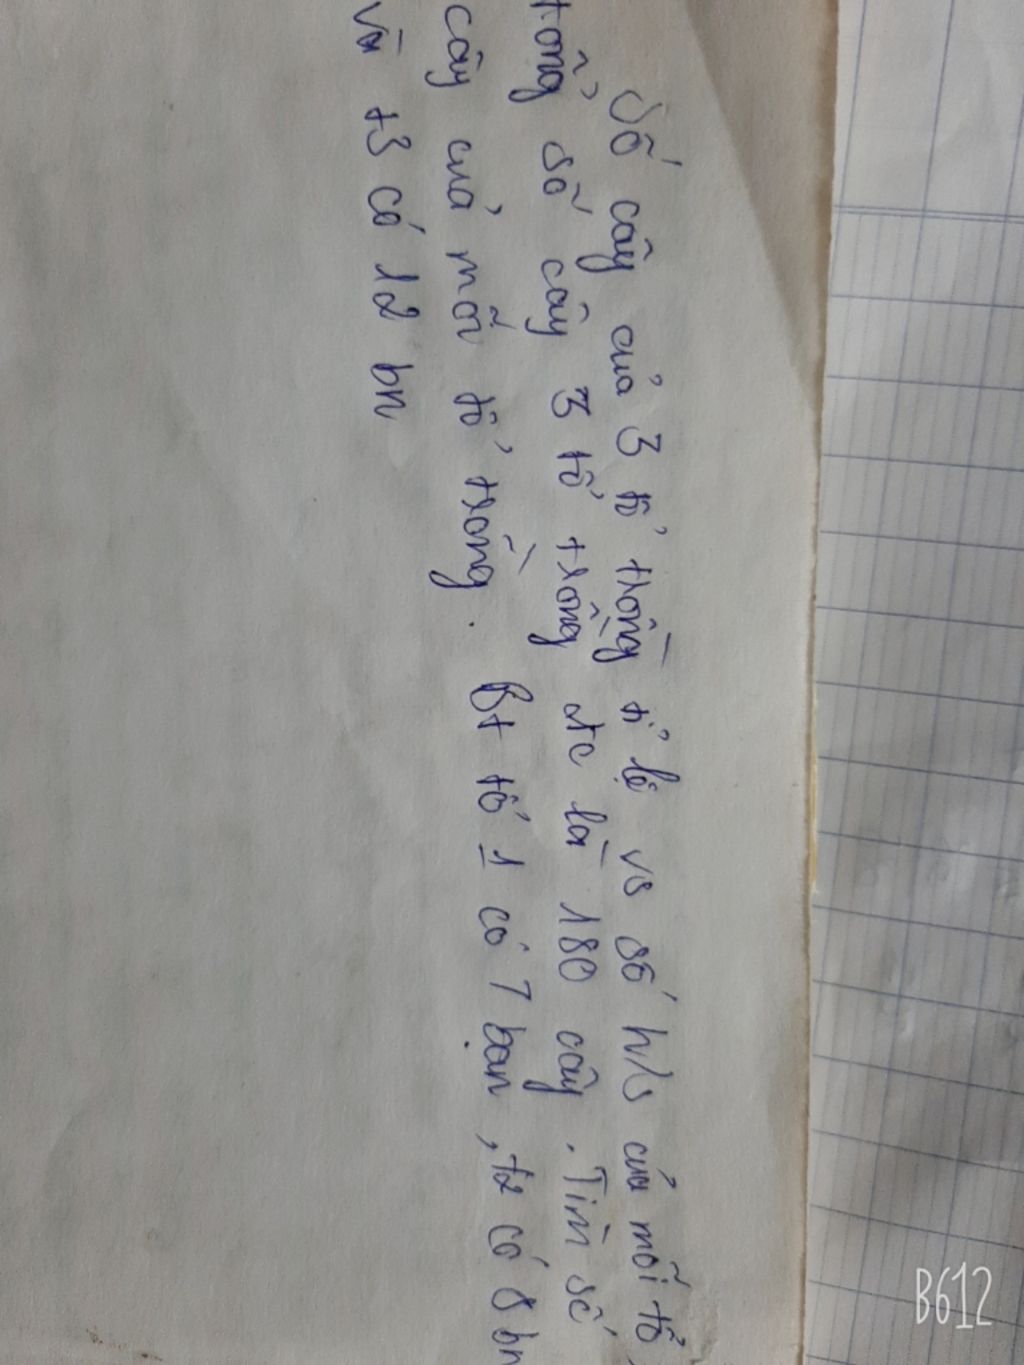 Số cây của 3 tổ trồng tỉ lệ vs số h/s của mỗi tổ,
tổng số cây 3 tổ trồng đc là 180 cây. Tìm số
cây của mỗi tổ trồng. Bt tổ 1 có 7 bạn, t2 có 8 bn
và t3 có 12 bn
B612